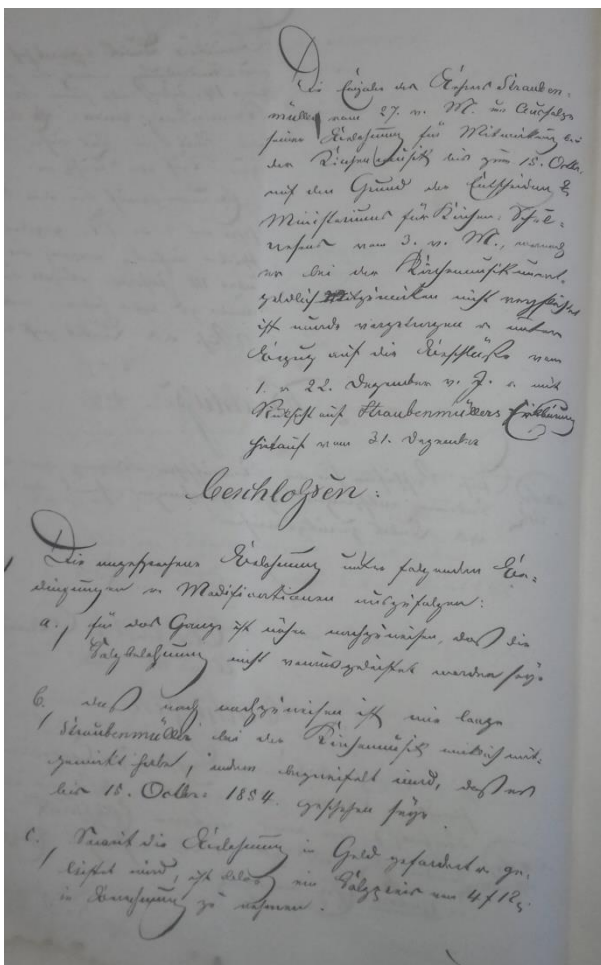 Die Eingabe des Lehrers Strauben-
müller vom 27. v. M. um Ausfolge
seiner Belohnung für Mitwirkung bei
der Kirchenmusik bis zum 15. Octbr.
auf den Grund der Entscheidung d.
Ministeriums für Kirchen- & Schul-
wesens vom 3. v. M., wonach
er bei der Kirchenmusik unent-
geldlich mitzuwirken nicht verpflichtet
ist wurde vorgetragen & unter
Bezug auf die Beschlüße vom
1. & 22. Dezember v. J. & mit
Rücksicht auf Straubenmüllers Erklärung
hierauf vom 31. Dezember
beschloßen:
Die angesprochene Belohnung unter folgenden Be-
dingungen & Modificationen auszufolgen:
a., für das Ganze ist näher nachzuweisen, daß die
Salzbelohnung nicht vorausgeleistet worden seye
b. daß noch nachzuweisen ist wie lange
Straubenmüller bei der Kirchenmusik wirklich mit-
gewirkt habe, indem bezweifelt wird, daß es
bis 15. Octbr. 1854. geschehen seye
c. Soweit die Belohnung in Geld gefordert & ge-
leistet wird, ist ein Salzpreis von 4 f 12
in Berechnung zu nehmen.